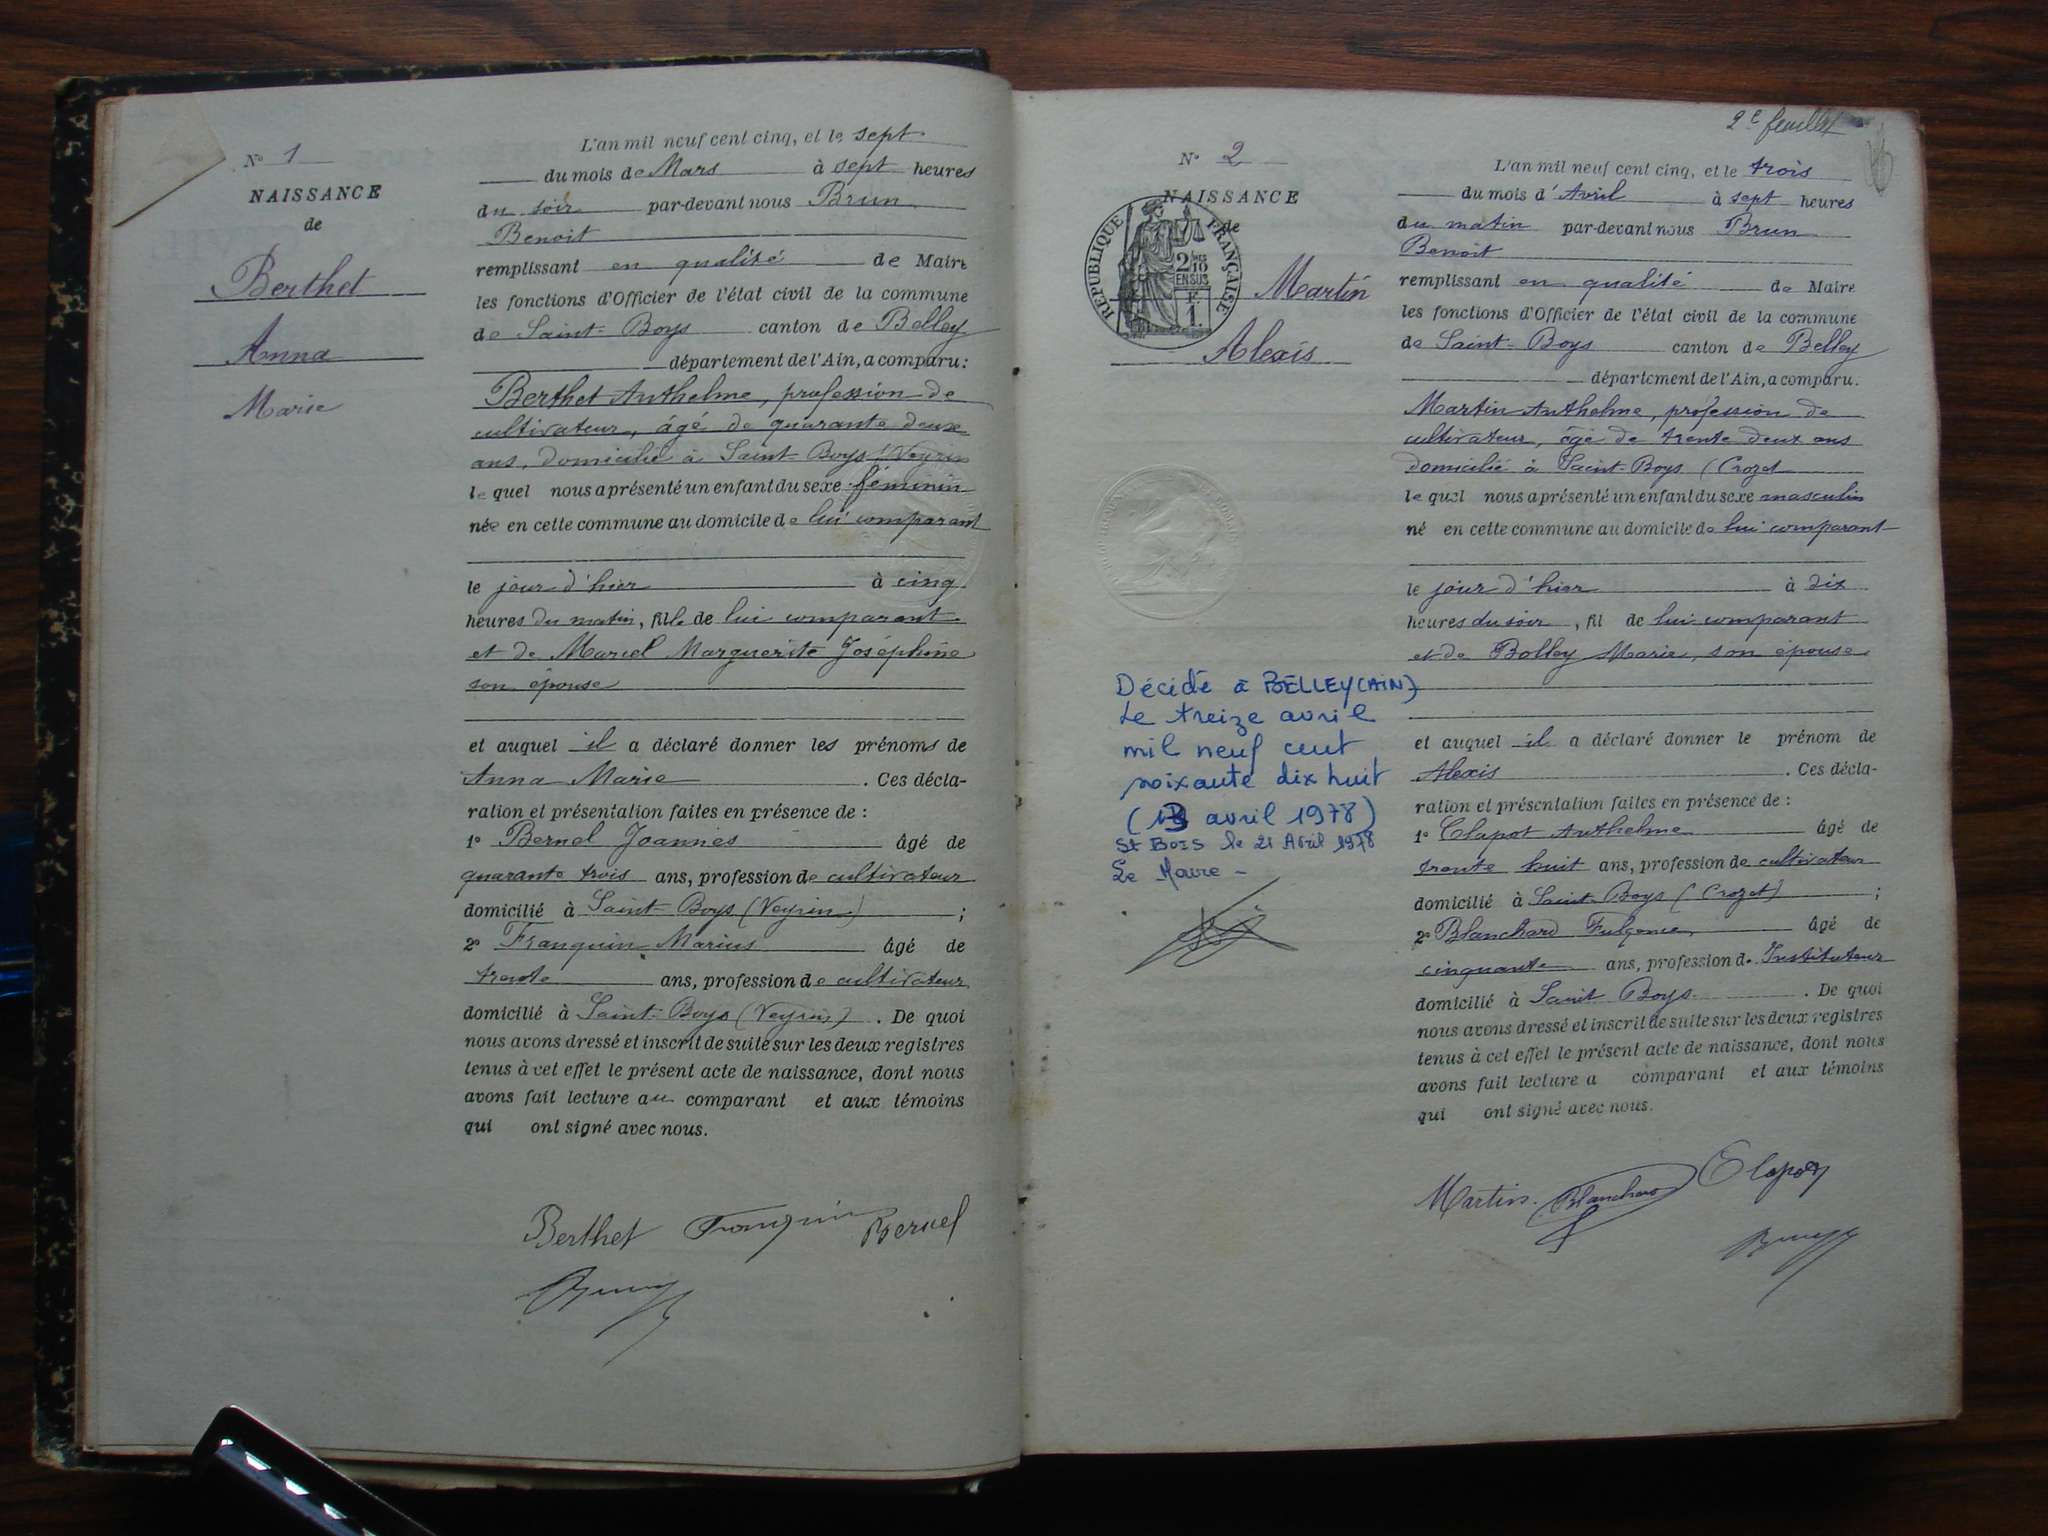 N° 1
NAISSANCE
de
Berthet
Anna
Marie
L'an mil neuf cent cinq, et le sept
du mois de Mars à sept heures
du soir par-devant nous Brun
Benoit
remplissant en qualité de Maire
les fonctions d'Officier de l'état civil de la commune
de Saint-Boys canton de Belley
département de l'Ain, a comparu:
Berthet Anthelme, profession de
cultivateur, âgé de quarante deux
ans, domicilié à Saint-Boys (Veyrin
lequel nous a présenté un enfant du sexe féminin
née en cette commune au domicile de lui comparant
le jour d'hier à cinq
heures du matin, fille de lui comparant
et de Marcel Marguerite Joséphine
son épouse
et auquel il a déclaré donner les prénoms de
Anna Marie. Ces décla-
ration et présentation faites en présence de :
1° Bernel Joannès âgé de
quarante trois ans, profession de cultivateur
domicilié à Saint-Boys (Veyrin) ;
2° Franquin Marius âgé de
trente ans, profession de cultivateur
domicilié à Saint-Boys (Veyrin). De quoi
nous avons dressé et inscrit de suite sur les deux registres
tenus à cet effet le présent acte de naissance, dont nous
avons fait lecture au comparant et aux témoins
qui ont signé avec nous.
Berthet Franquin Bernel
Brun
2e feuillet
N° 2
NAISSANCE
de
REPUBLIQUE FRANÇAISE
2/10
EN SUS
F.
1.
Martin
Alexis
L'an mil neuf cent cinq, et le trois
du mois d'Avril à sept heures
du matin par-devant nous Brun
Benoit
remplissant en qualité de Maire
les fonctions d'Officier de l'état civil de la commune
de Saint-Boys canton de Belley
département de l'Ain, a comparu.
Martin Anthelme, profession de
cultivateur, âgé de trente deux ans
domicilié à Saint-Boys (Crozet
lequel nous a présenté un enfant du sexe masculin
né en cette commune au domicile de lui comparant
le jour d'hier à dix
heures du soir, fil de lui comparant
et de Bolley Marie, son épouse
et auquel il a déclaré donner le prénom de
Alexis. Ces décla-
ration et présentation faites en présence de :
1° Clapot Anthelme âgé de
trente huit ans, profession de cultivateur
domicilié à Saint-Boys (Crozet) ;
2° Blanchard Fulgence, âgé de
cinquante ans, profession d. Instituteur
domicilié à Saint Boys. De quoi
nous avons dressé et inscrit de suite sur les deux registres
tenus à cet effet le présent acte de naissance, dont nous
avons fait lecture a comparant et aux témoins
qui ont signé avec nous.
Martin Blanchard Clapot
Brun
Décidé à BELLEY (AIN)
Le treize avril
mil neuf cent
soixante dix huit
(13 avril 1978)
St BOIS le 21 Avril 1978
Le Maire -